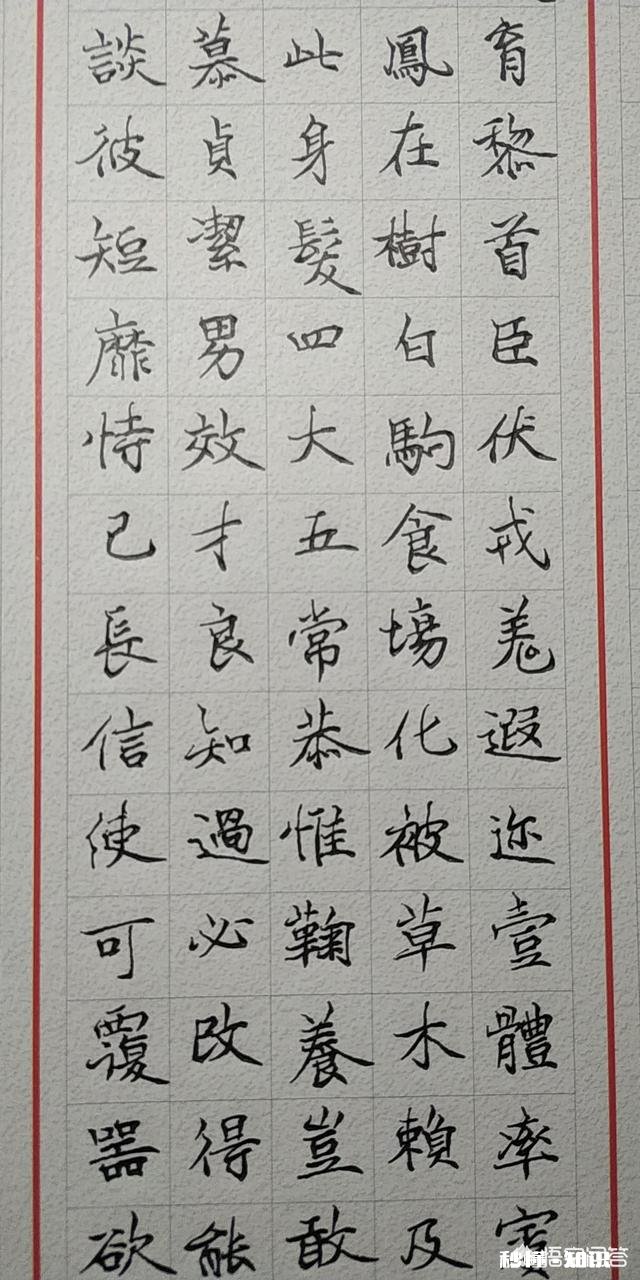 育黎首臣伏戎羌遐迩壹體率賓
鳳在樹白駒食場化被草木賴及
此身髮四大五常恭惟鞠養豈敢
慕貞潔男效才良知過必改得能
談彼短靡恃己長信使可覆器欲
悟空问答
知识